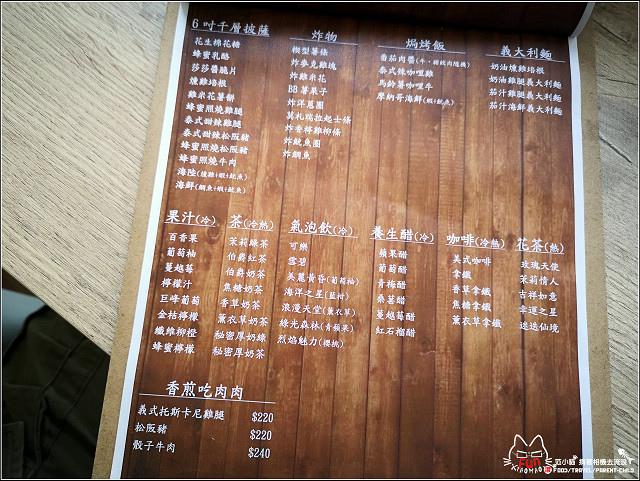 6吋千層披薩
花生棉花糖
蜂蜜乳酪
莎莎醬脆片
燻雞培根
雞米花薯餅
蜂蜜照燒雞腿
泰式甜辣雞腿
泰式甜辣松阪豬
蜂蜜照燒松阪豬
蜂蜜照燒牛肉
海陸(燻雞+蝦+魷魚)
海鮮(鯛魚+蝦+魷魚)
炸物
楔型薯條
炸麥克雞塊
炸雞米花
BB薯果子
炸洋蔥圈
莫札瑞拉起士條
炸香檸雞柳條
炸魷魚圈
炸鯛魚
焗烤飯
番茄肉醬(牛、豬絞肉隨機)
泰式辣咖哩雞
馬鈴薯咖哩牛
摩納哥海鮮(蝦+魷魚)
義大利麵
奶油燻雞培根
奶油雞腿義大利麵
茄汁雞腿義大利麵
茄汁海鮮義大利麵
果汁(冷)
百香果
葡萄柚
蔓越莓
檸檬汁
巨峰葡萄
金桔檸檬
纖維柳橙
蜂蜜檸檬
茶(冷熱)
茉莉綠茶
伯爵紅茶
伯爵奶茶
焦糖奶茶
香草奶茶
薰衣草奶茶
秘密厚奶綠
秘密厚奶茶
氣泡飲(冷)
可樂
雪碧
美麗黃昏(葡萄柚)
海洋之星(藍柑)
浪漫天堂(薰衣草)
綠光森林(青蘋果)
烈焰魅力(櫻桃)
養生醋(冷)
蘋果醋
葡萄醋
青梅醋
桑葚醋
蔓越莓醋
紅石榴醋
咖啡(冷熱)
美式咖啡
拿鐵
香草拿鐵
焦糖拿鐵
薰衣草拿鐵
花茶(熱)
玫瑰天使
茉莉情人
吉祥如意
幸運之星
迷迭仙境
香煎吃肉肉
義式托斯卡尼雞腿 $220
松阪豬 $220
骰子牛肉 $240
FUN
FOOD/TRAVEL/PARENT-CHILD